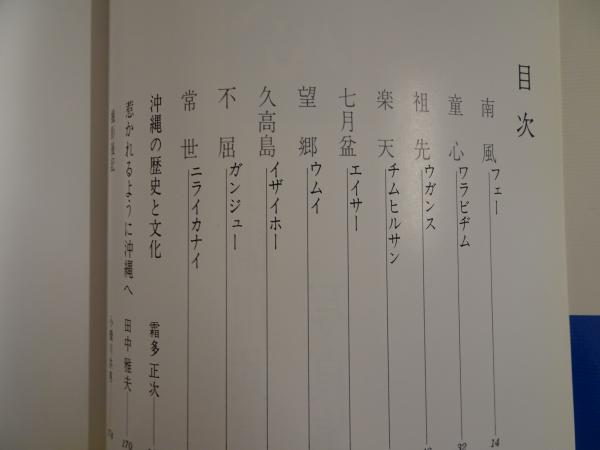 目次
南風 フェー 14
童心 ワラビヂム 32
祖先 ウガンス
楽天 チムヒルサン
七月盆 エイサー
望郷 ウムイ
久高島 イザイホー
不屈 ガンジュー
常世 ニライカナイ
沖縄の歴史と文化 霜多正次
惹かれるように沖縄へ 田中雅夫 170
撮影後記